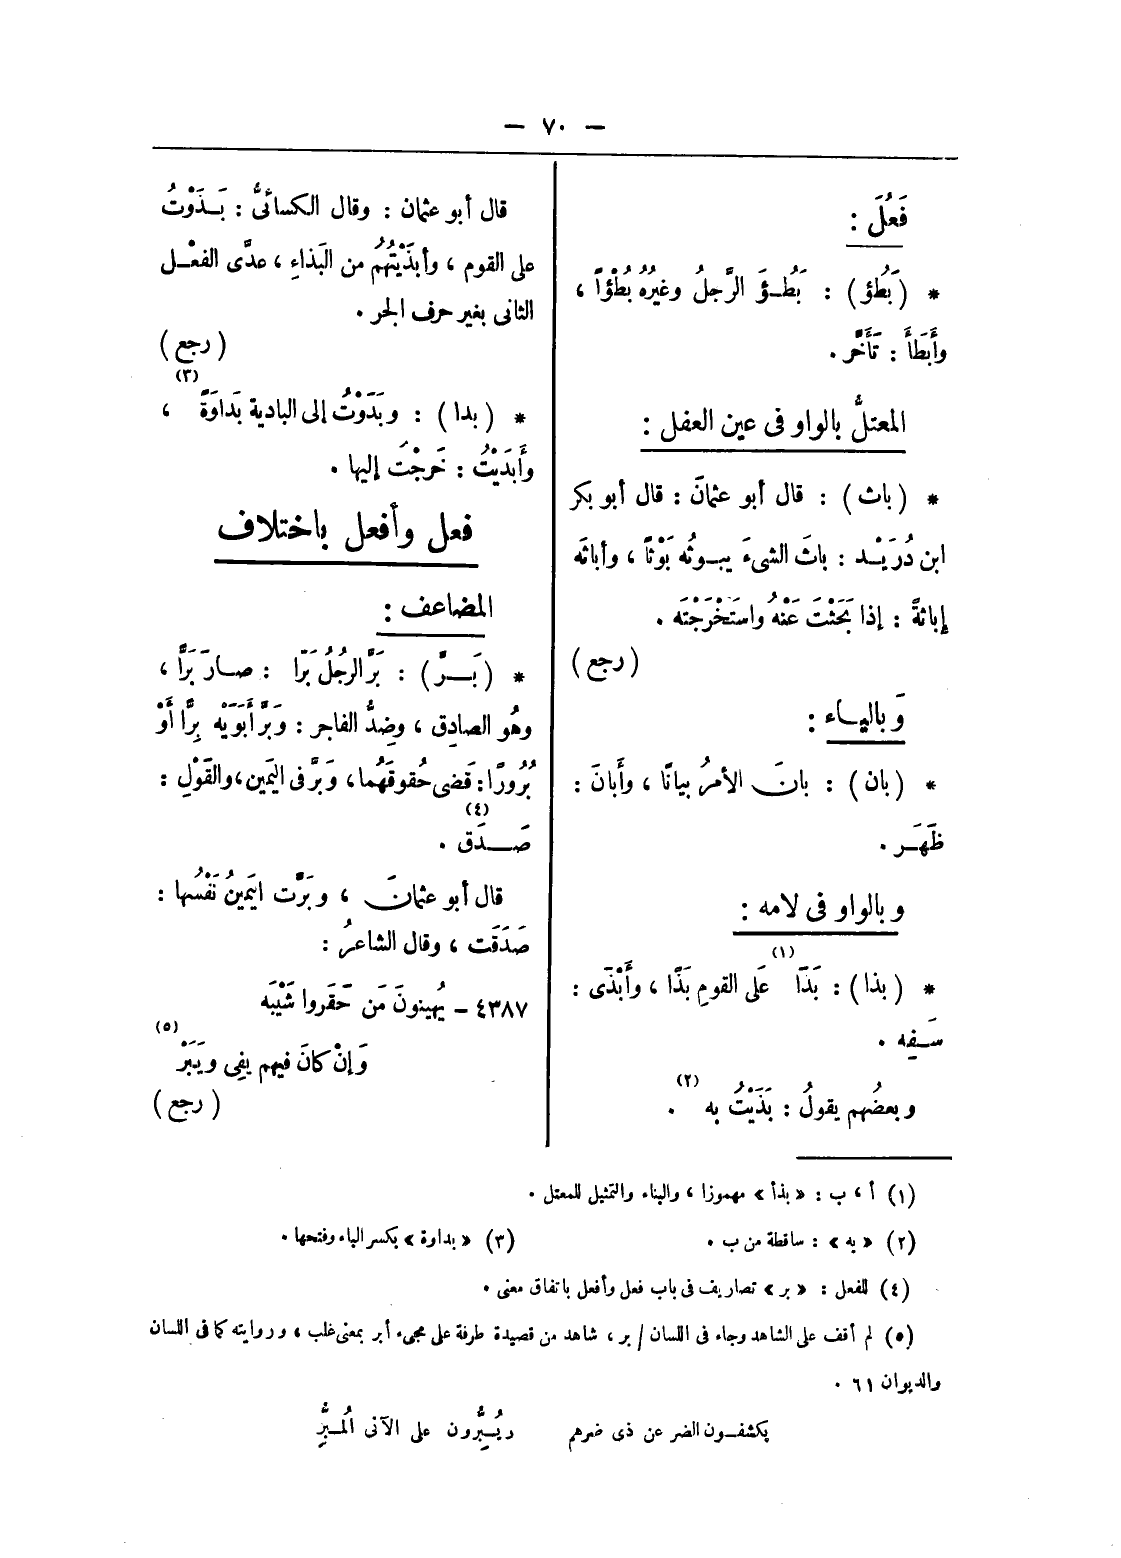 — ٧٠ —
فَعُلَ :
* ( بَطُؤ ) : بَطُـؤَ الرَّجلُ وغيرُهُ بُطْؤاً ،
وأَبَطأَ : تَأَخَّر .
المعتلُّ بالواو فى عين العفل :
* ( باث ) : قال أبو عثمانَ : قال أبو بكر
ابن دُرَيْـد : باثَ الشىءَ يبـوثُه بَوْثاً ، وأباثَه
إباثةً : إذا بَحَثْتَ عَنْهُ واستَخْرَجْتَه .
( رجع )
وَبالياء :
* ( بان ) : بانَ الأمرُ بيانًا ، وأَبانَ :
ظَهَر .
وبالواو فى لامه :
* ( بذا ) : بَذَا (١) عَلَى القومِ بَذًا ، وأَبْذَى :
سَفِه .
وبعضُهم يقولُ : بَذَيْتُ به (٢) .
قال أبو عثمان : وقال الكسائىُّ : بَـذَوْتُ
على القوم ، وأبذَيْتُهُم من البَذاءِ ، عدَّى الفعْـل
الثانى بغير حرف الجر .
( رجع )
* ( بدا ) : وبَدَوْتُ إلى البادية بَداوَةً (٣) ،
وأَبدَيْتُ : خَرجْت إليها .
فعل وأفعل باختلاف
المضاعف :
* ( بَـرَّ ) : بَرَّ الرجُلُ بَرًا : صـارَ بَرًّا ،
وهُو الصادِق ، وضِدُّ الفاجر : وَبَرَّ أَبَوَيْه بِرًّا أَوْ
بُرُورًا : قَضى حُقوقَهُما ، وَبَرَّ فى اليَمين ، والقَوْلِ :
صَـدَق (٤) .
قال أبو عثمانَ ، وبَرَّت اليَمِينُ نَفْسُها :
صَدَقَت ، وقال الشاعرُ :
٤٣٨٧ – يُهينونَ مَن حَقَروا شَيْبَه
وَإنْ كانَ فيهم يفِى ويَبَرّ (٥)
( رجع )
(١) أ ، ب : « بذأ » مهموزا ، والبناء والتمثيل للمعتل .
(٢) « به » : ساقطة من ب . (٣) « بداوة » بكسر الباء وفتحها .
(٤) للفعل : « بر » تصاريف فى باب فعل وأفعل باتفاق معنى .
(٥) لم أقف على الشاهد وجاء فى اللسان / بر ، شاهد من قصيدة طرفة على مجىء أبر بمعنى غلب ، وروايته كما فى اللسان
والديوان ٦١ .
يكشفـون الضر عن ذى ضرهم ويُـبِرُّون على الآبى المُـبِرُّ